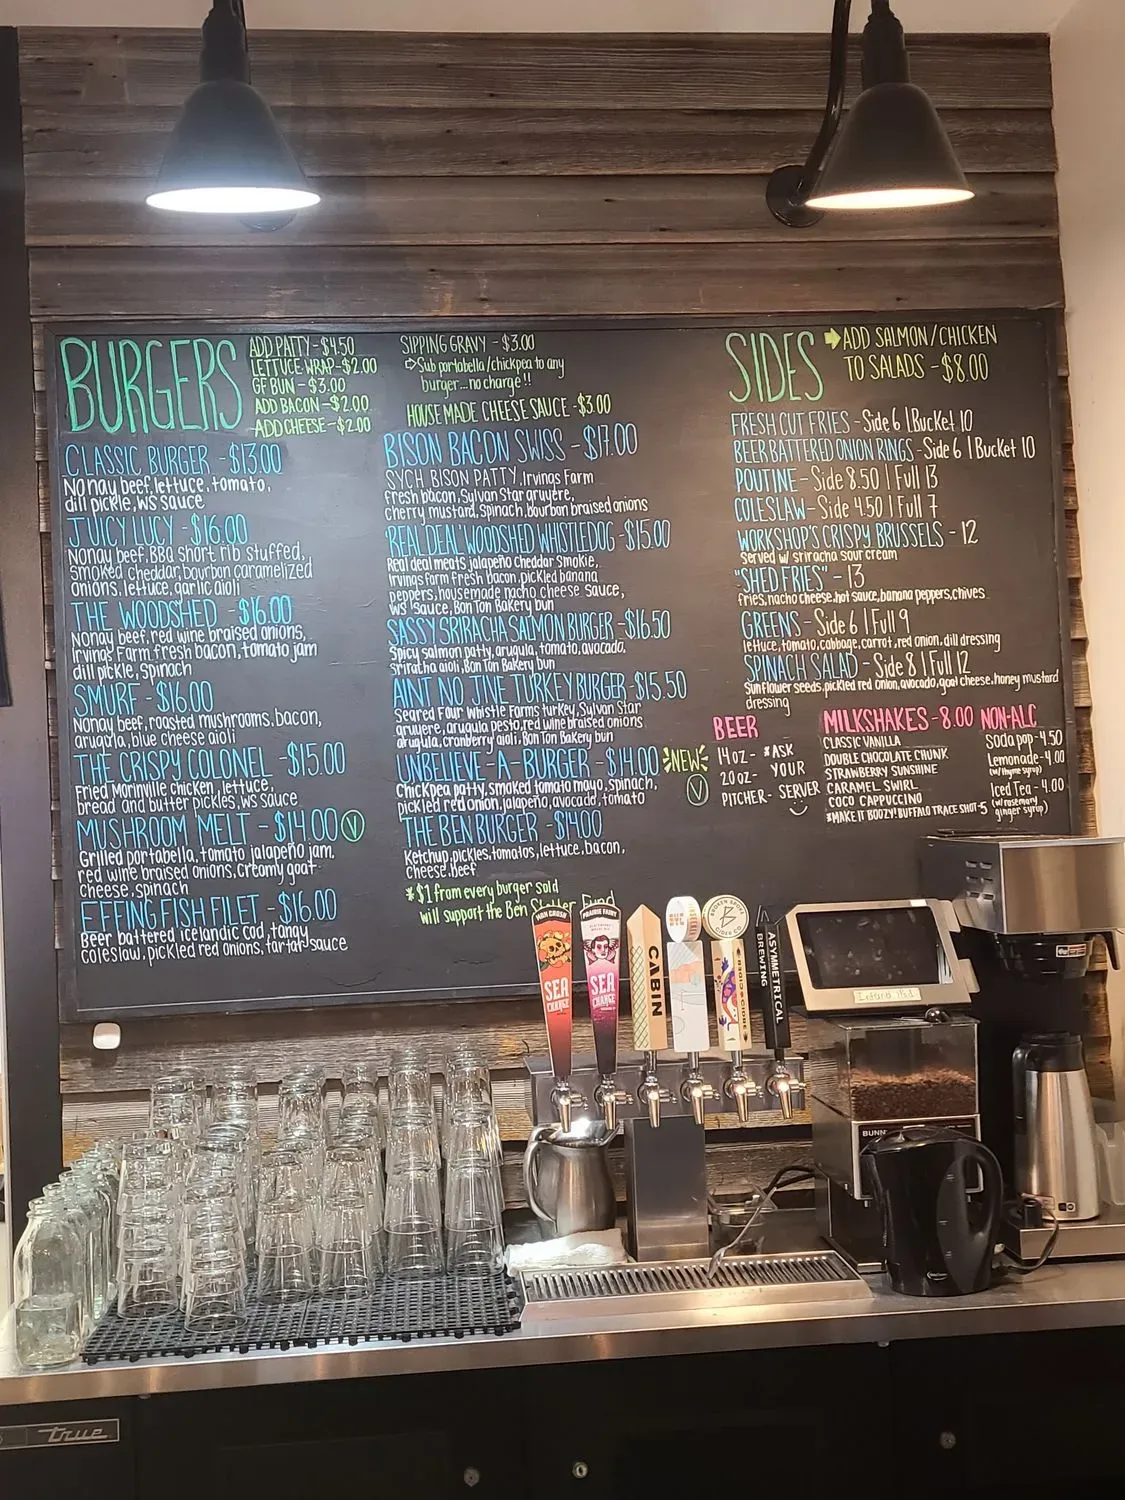 BURGERS
ADD PATTY - $4.50
LETTUCE WRAP - $2.00
GF BUN - $3.00
ADD BACON - $2.00
ADD CHEESE - $2.00
SIPPING GRAVY - $3.00
Sub portabella/chickpea to any
burger... no charge!!
HOUSEMADE CHEESE SAUCE - $3.00
CLASSIC BURGER - $13.00
Nonay beef, lettuce, tomato,
dill pickle, WS sauce
JUICY LUCY - $16.00
Nonay beef, BBQ short rib stuffed,
smoked cheddar, bourbon caramelized
onions, lettuce, garlic aioli
THE WOODSHED - $16.00
Nonay beef, red wine braised onions,
Irvings Farm fresh bacon, tomato jam
dill pickle, spinach
SMURF - $16.00
Nonay beef, roasted mushrooms, bacon,
arugula, blue cheese aioli
THE CRISPY COLONEL - $15.00
Fried Morinville chicken, lettuce,
bread and butter pickles, WS sauce
MUSHROOM MELT - $14.00 V
Grilled portabella, tomato jalapeño jam,
red wine braised onions, creamy goat
cheese, spinach
EFFING FISH FILET - $16.00
Beer battered icelandic cod, tangy
coleslaw, pickled red onions, tartar sauce
BISON BACON SWISS - $17.00
SYCH BISON PATTY, Irvings Farm
fresh bacon, Sylvan Star gruyere,
cherry mustard, spinach, bourbon braised onions
REAL DEAL WOODSHED WHISTLEDOG - $15.00
Real deal meats jalapeño cheddar smokie,
Irvings farm fresh bacon, pickled banana
peppers, housemade nacho cheese sauce,
WS sauce, Bon Ton Bakery bun
SASSY SRIRACHA SALMON BURGER - $16.50
Spicy salmon patty, arugula, tomato, avocado,
sriratha aioli, Bon Ton Bakery bun
AINT NO JIVE TURKEY BURGER - $15.50
Seared Four Whistle Farms turkey, Sylvan Star
gruyere, arugula pesto, red wine braised onions
arugula, cranberry aioli, Bon Ton Bakery bun
UNBELIEVE-A-BURGER - $14.00 NEW
V
Chickpea patty, smoked tomato mayo, spinach,
pickled red onion, jalapeño, avocado, tomato
THE BEN BURGER - $14.00
Ketchup, pickles, tomatos, lettuce, bacon,
cheese, beef
*$1 from every burger sold
will support the Ben Fund
SIDES
ADD SALMON/CHICKEN
TO SALADS - $8.00
FRESH CUT FRIES - Side 6 | Bucket 10
BEER BATTERED ONION RINGS - Side 6 | Bucket 10
POUTINE - Side 8.50 | Full 13
COLESLAW - Side 4.50 | Full 7
WORKSHOP'S CRISPY BRUSSELS - 12
Served w/ sriracha sour cream
"SHED FRIES" - 13
fries, nacho cheese, hot sauce, banana peppers, chives
GREENS - Side 6 | Full 9
lettuce, tomato, cabbage, carrot, red onion, dill dressing
SPINACH SALAD - Side 8 | Full 12
Sunflower seeds, pickled red onion, avocado, goat cheese, honey mustard
dressing
BEER
14oz - *ASK
20oz - YOUR
PITCHER - SERVER
MILKSHAKES - 8.00
CLASSIC VANILLA
DOUBLE CHOCOLATE CHUNK
STRAWBERRY SUNSHINE
CARAMEL SWIRL
COCO CAPPUCCINO
*MAKE IT BOOZY! BUFFALO TRACE SHOT - 5
NON-ALC
Soda pop - 4.50
Lemonade - 4.00
(w/thyme syrup)
Iced Tea - 4.00
(w/rosemary
ginger syrup)
MAN CRUSH
SEA
CHANGE
PRAIRIE FAIRY
SEA
CHANGE
CABIN
BROKEN SPOKE
CIDER CO
ASYMMETRICAL
BREWING
BUNN
true